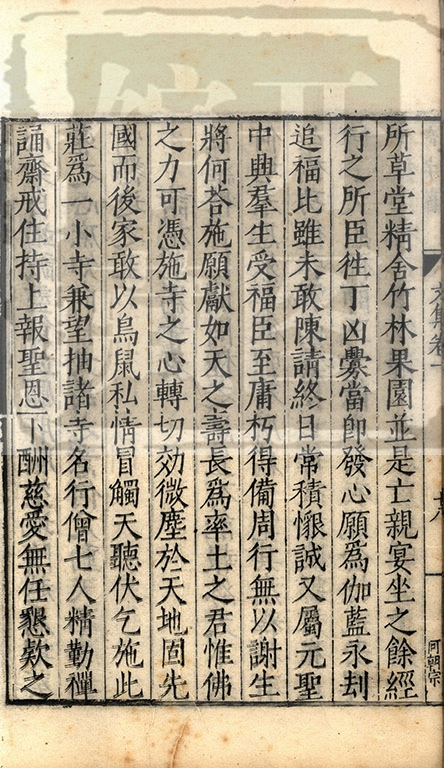 所草堂精舍竹林果園並是亡親宴坐之餘經
行之所臣徃丁凶釁當卽發心願爲伽藍永刼
追福比雖未敢陳請終日常積懇誠又屬元聖
中興羣生受福臣至庸朽得備周行無以謝生
將何荅施願獻如天之壽長爲率土之君惟佛
之力可憑施寺之心轉切効微塵於天地固先
國而後家敢以鳥鼠私情冒觸天聽伏乞施此
莊爲一小寺兼望抽諸寺名行僧七人精勤禪
誦齋戒住持上報聖恩下酬慈愛無任懇欵之